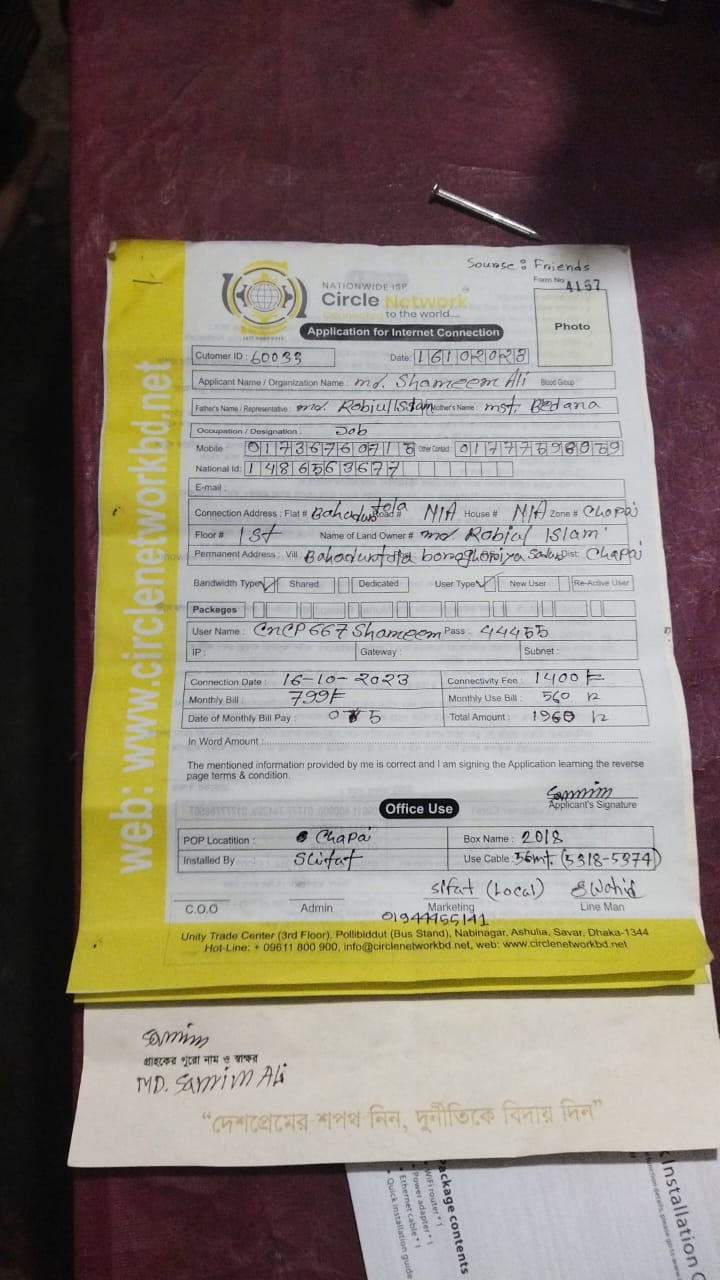 Sourse : Friends
Form No 4157
NATIONWIDE ISP
Circle Network
Connecting to the world....
Application for Internet Connection
Photo
Cutomer ID : 60033 Date: 16102023
Applicant Name / Organization Name : md. Shameem Ali Blood Group :
Father's Name / Representative : md. Robiul Islam Mother's Name : mst. Bedana
Occupation / Designation : Job
Mobile Other Contact
National Id: 1486563677
E-mail :
Connection Address : Flat # Bahadurtola Road # N/A House # N/A Zone # Chapai
Floor # 1st Name of Land Owner # md Robiul Islam
Permanent Address : Vill Dist: Chapai
Bandwidth Type Shared Dedicated User Type New User Re-Active User
Packeges
User Name : CnCP667Shameem Pass : 44455
IP : Gateway : Subnet :
Connection Date : 16-10-2023 Connectivity Fee : 1400
Monthly Bill : 799 Monthly Use Bill : 560
Date of Monthly Bill Pay : Total Amount : 1960
In Word Amount :
The mentioned information provided by me is correct and I am signing the Application learning the reverse
page terms & condition.
Samim
Applicant's Signature
Office Use
POP Locatition : Chapai Box Name : 2018
Installed By Use Cable : 56mt. (5318-5374)
Sifat (Local)
C.O.O Admin Marketing Line Man
01944455141
Unity Trade Center (3rd Floor), Pollibiddut (Bus Stand), Nabinagar, Ashulia, Savar, Dhaka-1344
Hot-Line: + 09611 800 900, info@circlenetworkbd.net, web: www.circlenetworkbd.net
web: www.circlenetworkbd.net
Samim
গ্রাহকের পুরো নাম ও স্বাক্ষর
MD. Samim Ali
“দেশপ্রেমের শপথ নিন, দুর্নীতিকে বিদায় দিন”
Package contents
• WiFi router * 1
• Power adapter * 1
• Ethernet cable * 1
• Quick installation guide
Installation